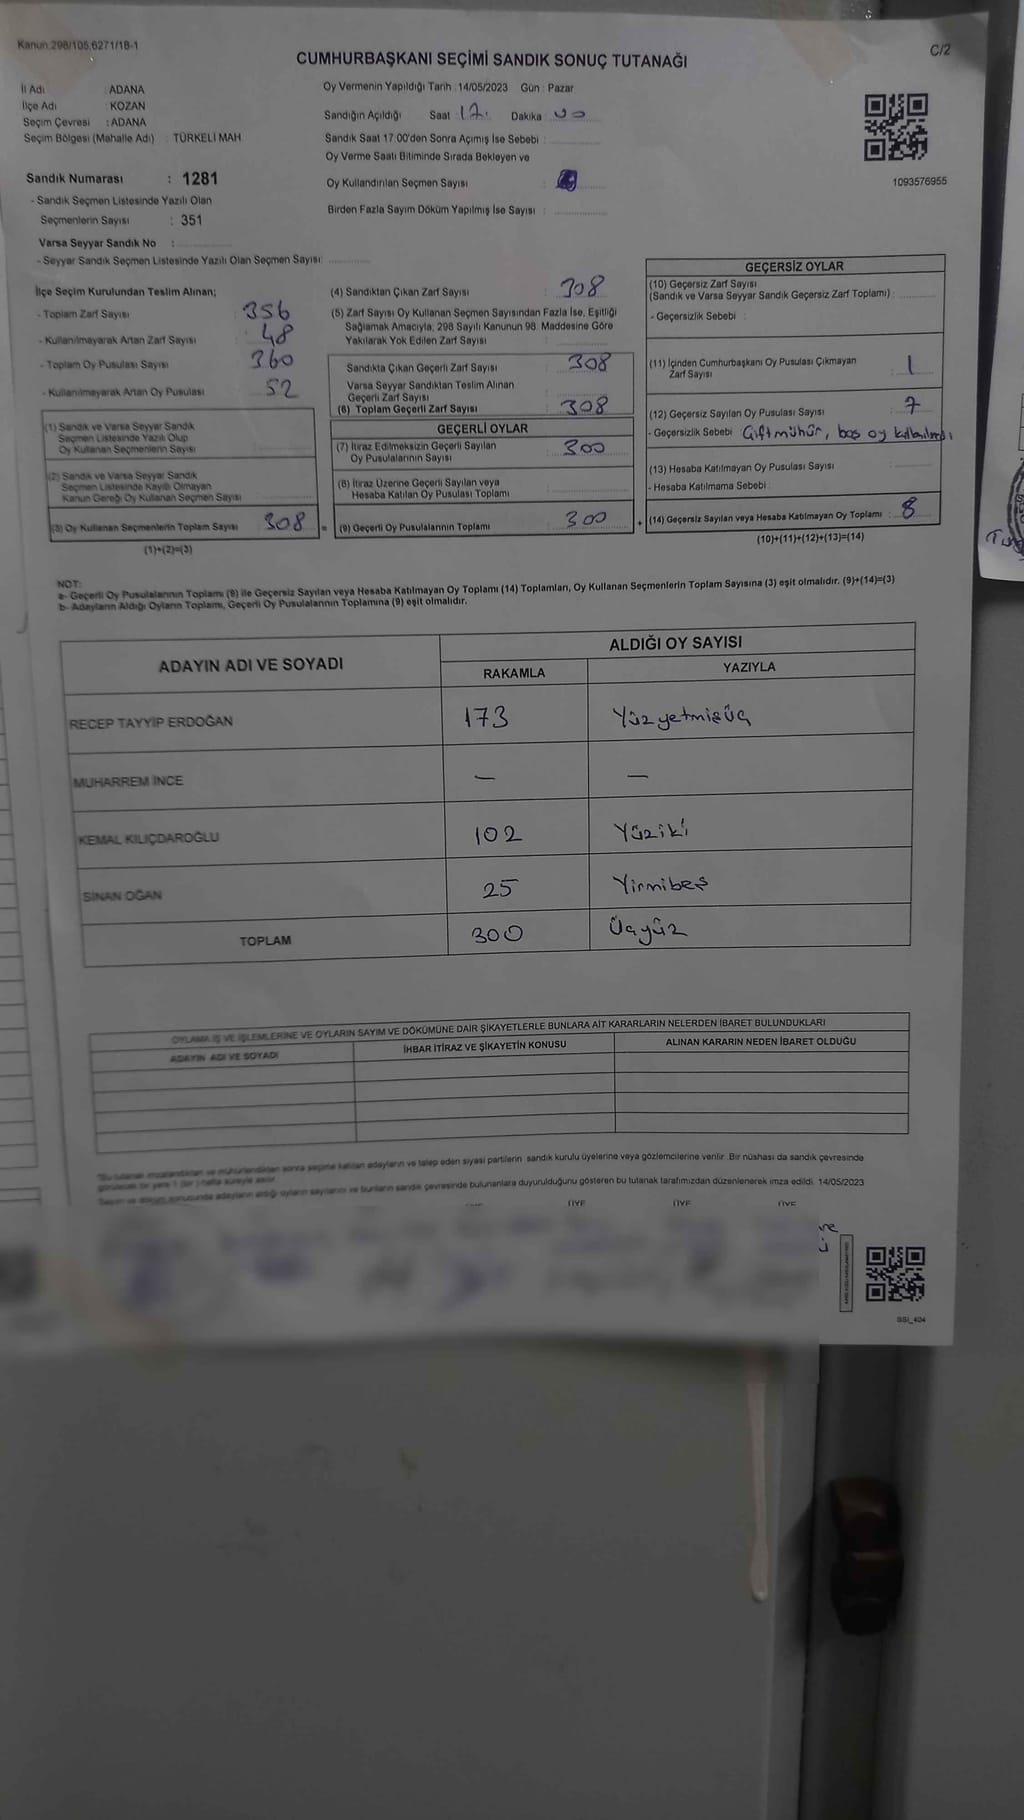 Kanun.298/105,6271/18-1
C/2
CUMHURBAŞKANI SEÇİMİ SANDIK SONUÇ TUTANAĞI
İl Adı : ADANA
İlçe Adı : KOZAN
Seçim Çevresi : ADANA
Seçim Bölgesi (Mahalle Adı) : TÜRKELİ MAH
Sandık Numarası : 1281
- Sandık Seçmen Listesinde Yazılı Olan
Seçmenlerin Sayısı : 351
Varsa Seyyar Sandık No :
- Seyyar Sandık Seçmen Listesinde Yazılı Olan Seçmen Sayısı:
Oy Vermenin Yapıldığı Tarih : 14/05/2023 Gün : Pazar
Sandığın Açıldığı Saat 17. Dakika 00
Sandık Saat 17:00'den Sonra Açımış İse Sebebi :
Oy Verme Saati Bitiminde Sırada Bekleyen ve
Oy Kullandırılan Seçmen Sayısı :
Birden Fazla Sayım Döküm Yapılmış İse Sayısı :
1093576955
İlçe Seçim Kurulundan Teslim Alınan;
- Toplam Zarf Sayısı : 356
- Kullanılmayarak Artan Zarf Sayısı : 48
- Toplam Oy Pusulası Sayısı : 360
- Kullanılmayarak Artan Oy Pusulası : 52
(1) Sandık ve Varsa Seyyar Sandık
Seçmen Listesinde Yazılı Olup
Oy Kullanan Seçmenlerin Sayısı
(2) Sandık ve Varsa Seyyar Sandık
Seçmen Listesinde Kayıtlı Olmayan
Kanun Gereği Oy Kullanan Seçmen Sayısı
(3) Oy Kullanan Seçmenlerin Toplam Sayısı 308 =
(1)+(2)=(3)
(4) Sandıktan Çıkan Zarf Sayısı : 308
(5) Zarf Sayısı Oy Kullanan Seçmen Sayısından Fazla İse, Eşitliği
Sağlamak Amacıyla, 298 Sayılı Kanunun 98. Maddesine Göre
Yakılarak Yok Edilen Zarf Sayısı :
Sandıkta Çıkan Geçerli Zarf Sayısı : 308
Varsa Seyyar Sandıktan Teslim Alınan
Geçerli Zarf Sayısı :
(6) Toplam Geçerli Zarf Sayısı : 308
GEÇERLİ OYLAR
(7) İtiraz Edilmeksizin Geçerli Sayılan
Oy Pusulalarının Sayısı : 300
(8) İtiraz Üzerine Geçerli Sayılan veya
Hesaba Katılan Oy Pusulası Toplamı :
(9) Geçerli Oy Pusulalarının Toplamı : 300 +
GEÇERSİZ OYLAR
(10) Geçersiz Zarf Sayısı
(Sandık ve Varsa Seyyar Sandık Geçersiz Zarf Toplamı) :
- Geçersizlik Sebebi :
(11) İçinden Cumhurbaşkanı Oy Pusulası Çıkmayan
Zarf Sayısı : 1
(12) Geçersiz Sayılan Oy Pusulası Sayısı : 7
- Geçersizlik Sebebi Çift mühür, boş oy kullanılması
(13) Hesaba Katılmayan Oy Pusulası Sayısı :
- Hesaba Katılmama Sebebi :
(14) Geçersiz Sayılan veya Hesaba Katılmayan Oy Toplamı : 8
(10)+(11)+(12)+(13)=(14)
NOT:
a- Geçerli Oy Pusulalarının Toplamı (9) ile Geçersiz Sayılan veya Hesaba Katılmayan Oy Toplamı (14) Toplamları, Oy Kullanan Seçmenlerin Toplam Sayısına (3) eşit olmalıdır. (9)+(14)=(3)
b- Adayların Aldığı Oyların Toplamı, Geçerli Oy Pusulalarının Toplamına (9) eşit olmalıdır.
ADAYIN ADI VE SOYADI
ALDIĞI OY SAYISI
RAKAMLA YAZIYLA
RECEP TAYYİP ERDOĞAN 173 Yüzyetmişüç
MUHARREM İNCE — —
KEMAL KILIÇDAROĞLU 102 Yüziki
SİNAN OĞAN 25 Yirmibeş
TOPLAM 300 Üçyüz
OYLAMA İŞ VE İŞLEMLERİNE VE OYLARIN SAYIM VE DÖKÜMÜNE DAİR ŞİKAYETLERLE BUNLARA AİT KARARLARIN NELERDEN İBARET BULUNDUKLARI
ADAYIN ADI VE SOYADI İHBAR İTİRAZ VE ŞİKAYETİN KONUSU ALINAN KARARIN NEDEN İBARET OLDUĞU
"Bu tutanak imzalandıktan ve mühürlendikten sonra seçime katılan adayların ve talep eden siyasi partilerin sandık kurulu üyelerine veya gözlemcilerine verilir. Bir nüshası da sandık çevresinde
görülecek bir yere 1 (bir) hafta süreyle asılır.
Seçim ve döküm sonucunda adayların aldığı oyların sayılarını ve bunların sandık çevresinde bulunanlara duyurulduğunu gösteren bu tutanak tarafımızdan düzenlenerek imza edildi. 14/05/2023
ÜYE ÜYE ÜYE
SSI_404